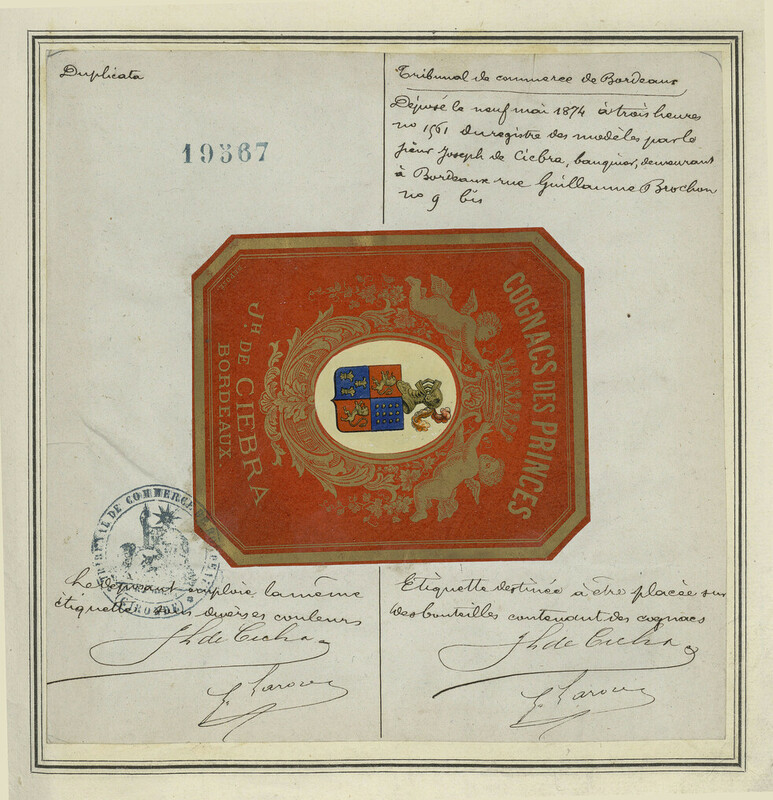 Duplicata
19567
Tribunal de commerce de Bordeaux
Déposé le neuf mai 1874 à trois heures
no 1561 du registre des modèles par le
sieur Joseph de Ciebra, banquier, demeurant
à Bordeaux rue Guillaume Brochon
no 9 bis
COGNACS DES PRINCES
JH. DE CIEBRA
BORDEAUX.
TRIBUNAL DE COMMERCE DE
GIRONDE
Le déposant emploie la même
étiquette en diverses couleurs
Jh de Ciebra
Etiquette destinée à être placée sur
des bouteilles contenant des cognacs
Jh de Ciebra